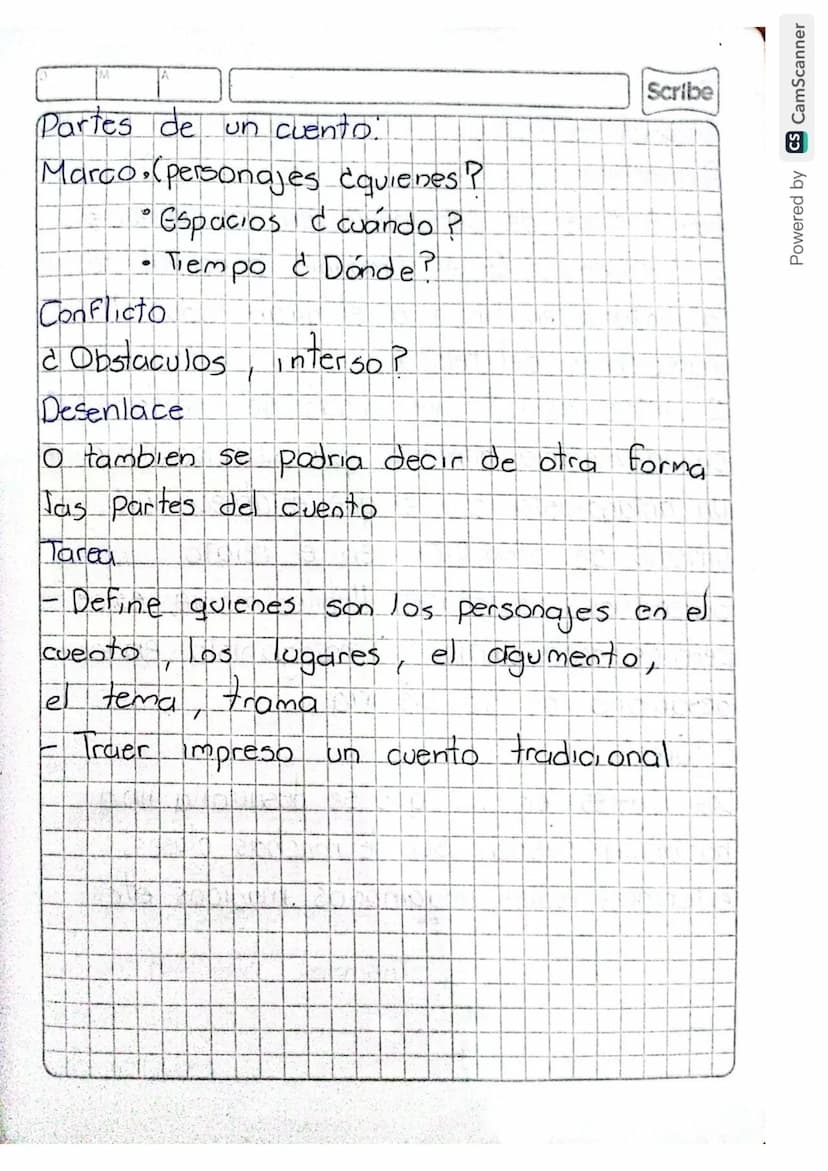 D M A
Scribe
Partes de un cuento:
Marco.(personajes ¿quienes?
° Espacios ¿cuándo?
• Tiempo ¿Dónde?
Conflicto
¿Obstaculos, interso?
Desenlace
O tambien se podria decir de otra forma
las partes del cuento
Tarea
- Define quienes son los personajes en el
cuento, Los lugares, el agumento,
el tema, trama
- Traer impreso un cuento tradicional
Powered by CS CamScanner